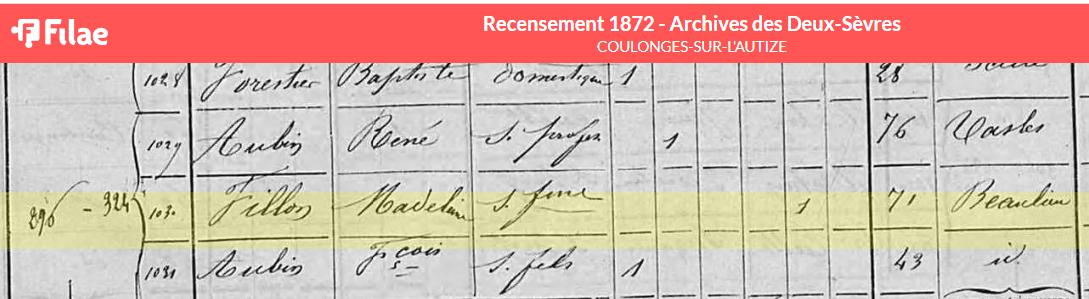 Filae
Recensement 1872 - Archives des Deux-Sèvres
COULONGES-SUR-L'AUTIZE
1028 Forestier Baptiste domestique 1 28
1029 Aubin René S. profes 1 76 Vasles
296 - 324 1030 Fillon Madeleine S. fme 1 71 Beaulieu
1031 Aubin Fçois S. fils 1 43 id